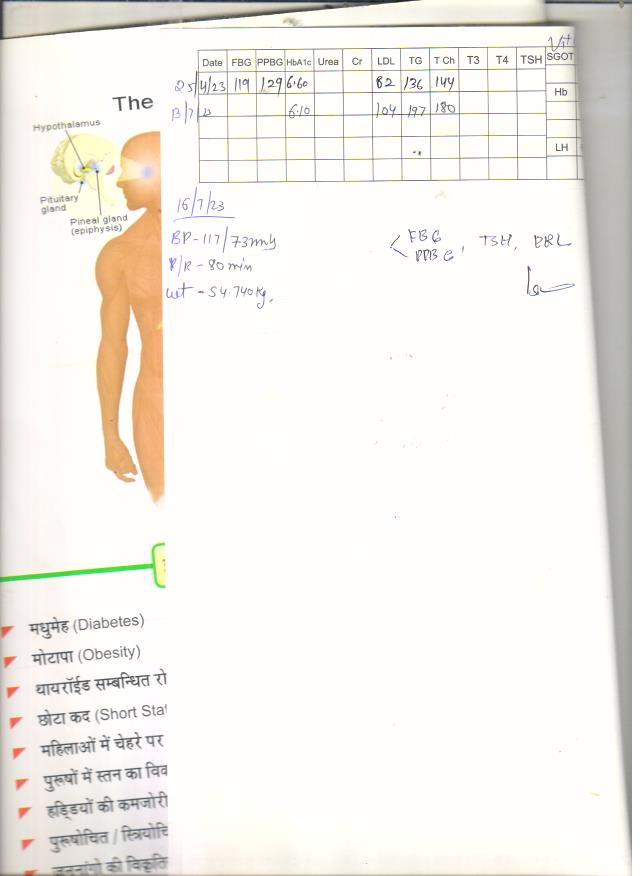 Vit
Date FBG PPBG HbA1c Urea Cr LDL TG T Ch T3 T4 TSH SGOT
25/4/23 119 129 6.60 82 136 144
Hb
13/7/23 6.10 104 197 180
LH
The
Hypothalamus
Pituitary
gland
Pineal gland
(epiphysis)
16/7/23
BP - 117/73 mmHg
P/R - 80 min
wt - 54.740 kg.
FBG
PPBG, TSH, PRL
मधुमेह (Diabetes)
मोटापा (Obesity)
थायरॉईड सम्बन्धित रो
छोटा कद (Short Stat
महिलाओं में चेहरे पर
पुरूषों में स्तन का विक
हड्डियों की कमजोरी
पुरूषोचित / स्त्रियोचि
जननांगो की विकृति